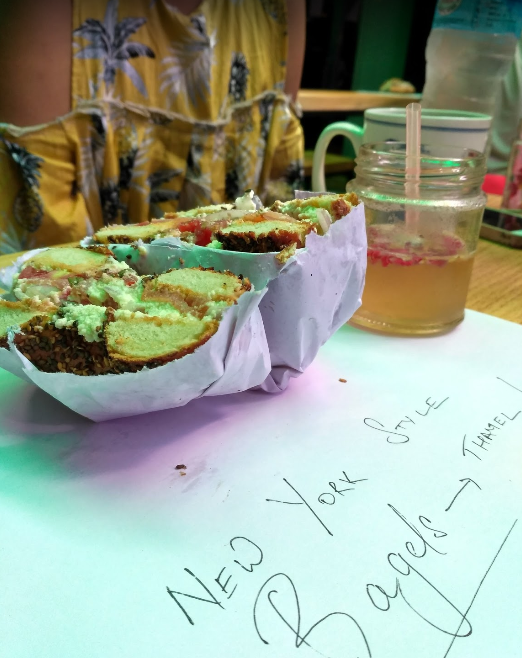 NEW YORK STYLE
Bagels → THAMEL!